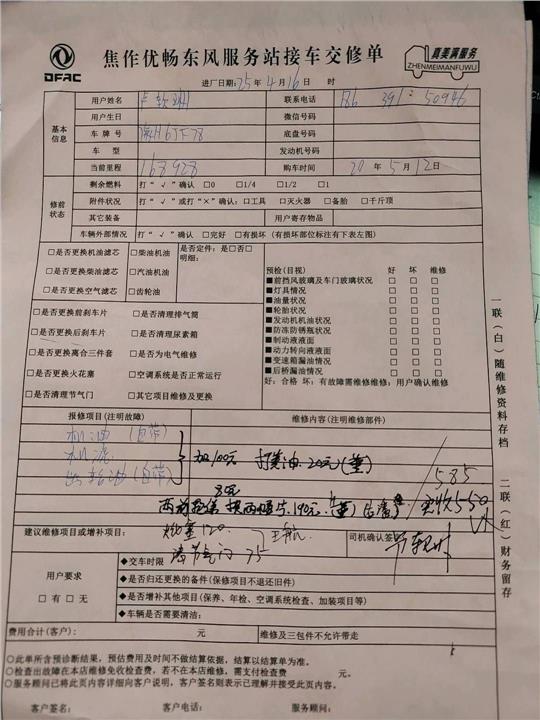 DFAC
焦作优畅东风服务站接车交修单
真美满服务
ZHENMEIMANFUWU
进厂日期:25年4月16日 时
基本信息
用户姓名 联系电话
用户生日 微信号码
车牌号 底盘号码
车 型 发动机号码
当前里程 168928 购车时间 20年5月12日
修前状态
剩余燃料 打“√”确认 □0 □1/4 □1/2 □1
附件状况 打“√”或打“×”确认:□工具 □灭火器 □备胎 □千斤顶
其它装备 用户寄存物品
车辆外部情况 打“√”确认 □完好 □有损坏 (有损坏部位标注有下表左图)
□是否更换机油滤芯 □柴油机油 是否定件:是□否□
□是否更换柴油滤芯 □汽油机油 明细:
□是否更换空气滤芯 □齿轮油
□是否更换前刹车片 □是否清理排气筒
□是否更换后刹车片 □是否清理尿素箱
□是否更换离合三件套 □是否为电气维修
□是否更换火花塞 □空调系统是否正常运行
□是否清理节气门 □其它项目维修及更换
预检(目视) 好 坏 维修
■前挡风玻璃及车门玻璃状况 □ □ □
■灯具情况 □ □ □
■油量状况 □ □ □
■轮胎状况 □ □ □
■发动机机油状况 □ □ □
■防冻防锈瓶状况 □ □ □
■制动液液面 □ □ □
■动力转向液液面 □ □ □
■变速箱漏油情况 □ □ □
■后桥漏油情况 □ □ □
好:合格 坏:有故障需维修维修;用户确认维修
报修项目(注明故障) 维修内容(注明维修部件)
机油(自带)
机滤
齿轮油(自带)
加100元 打黄油.20元(董)
80元
585
实收550
建议维修项目或增补项目:
清节气门 75
司机确认签字
用户要求
□有 □无
◆交车时限
◆是否归还更换的备件(保修项目不退还旧件)
◆是否增补其他项目(保养、年检、空调系统检查、加装项目等)
◆车辆是否需要清油:
费用合计(客户): 元 维修及三包件不允许带走
○此单所含预诊断结果,预估费用及时间不做结算依据,结算以结算单为准。
○检查出故障在本店维修免收检查费,若不在本店维修,需支付检查费 元。
○服务顾问已将此页内容详细向客户说明,客户签名则表示已理解并接受此页内容。
客户签名: 客户电话: 服务顾问:
一联(白)随维修资料存档
二联(红)财务留存